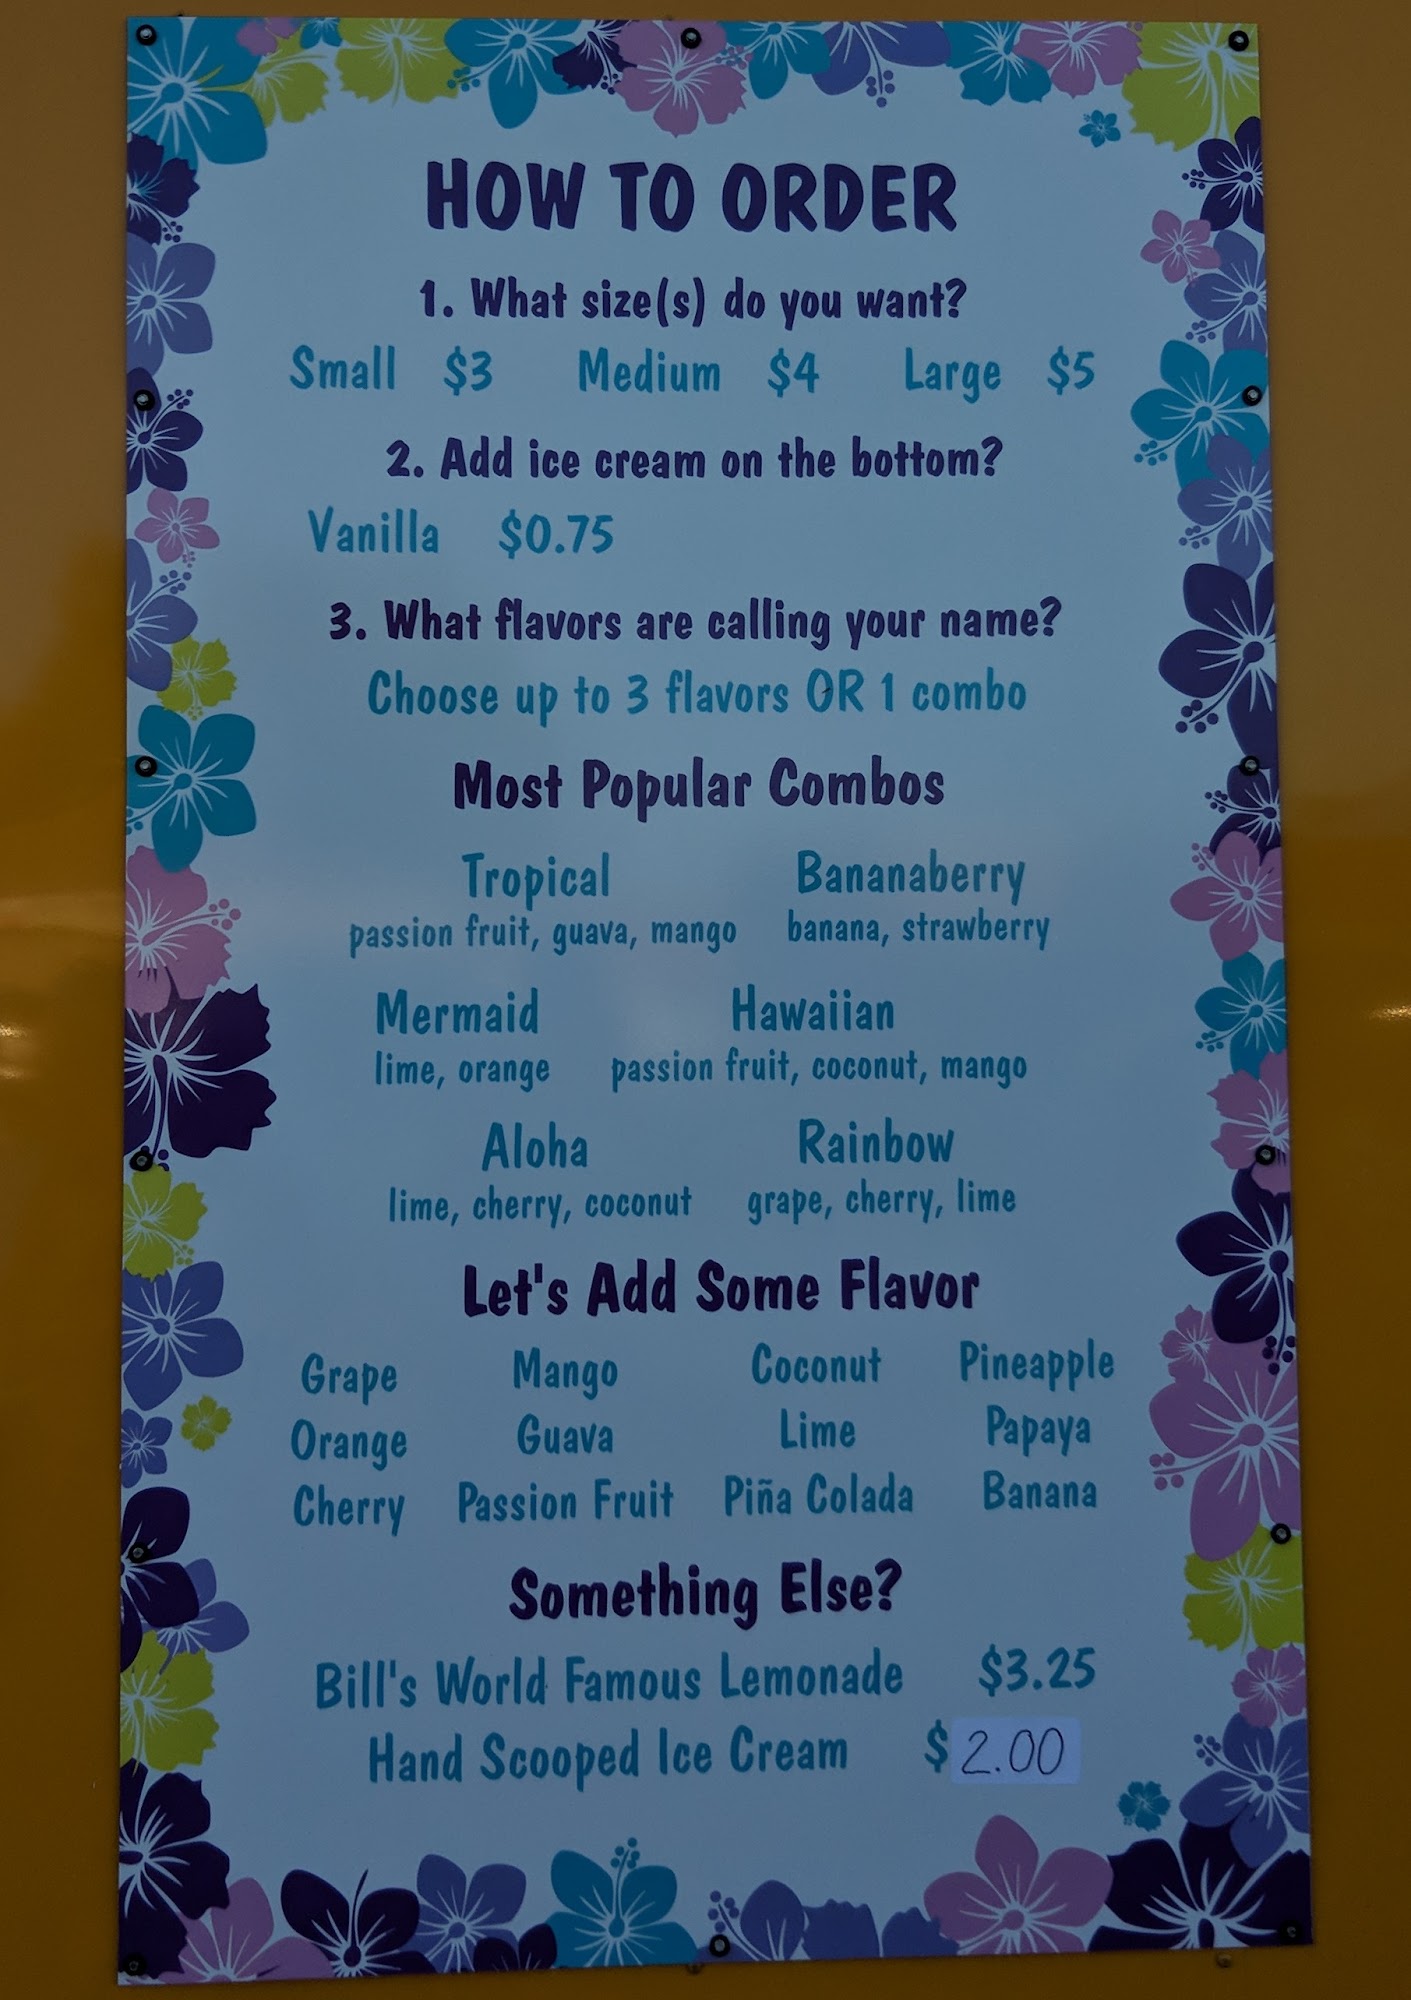 HOW TO ORDER
1. What size(s) do you want?
Small $3 Medium $4 Large $5
2. Add ice cream on the bottom?
Vanilla $0.75
3. What flavors are calling your name?
Choose up to 3 flavors OR 1 combo
Most Popular Combos
Tropical Bananaberry
passion fruit, guava, mango banana, strawberry
Mermaid Hawaiian
lime, orange passion fruit, coconut, mango
Aloha Rainbow
lime, cherry, coconut grape, cherry, lime
Let's Add Some Flavor
Grape Mango Coconut Pineapple
Orange Guava Lime Papaya
Cherry Passion Fruit Piña Colada Banana
Something Else?
Bill's World Famous Lemonade $3.25
Hand Scooped Ice Cream $2.00